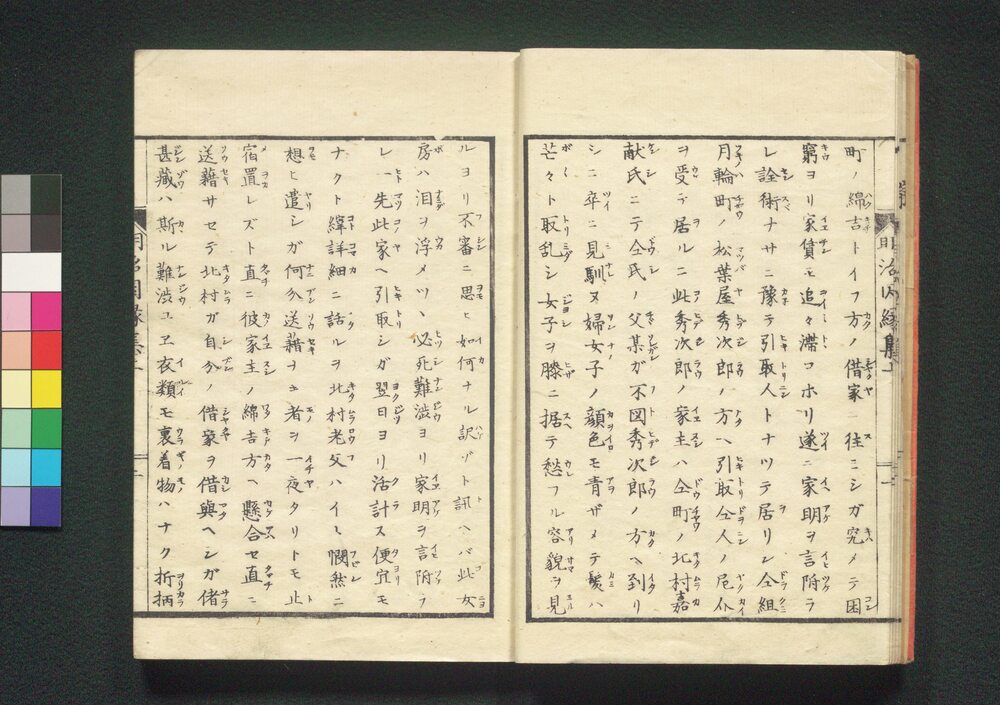 町ノ綿吉トイフ方ノ借家ニ住ミシガ究メテ困
窮ヨリ家賃モ追々滞コホリ遂ニ家明ヲ言附ラ
レ詮術ナサニ豫テ引取人トナツテ居リシ仝組
月輪町ノ松葉屋秀次郎ノ方ヘ引取仝人ノ厄介
ヲ受テ居ルニ此秀次郎ノ家主ハ仝町ノ北村嘉
献氏ニテ仝氏ノ父某ガ不図秀次郎ノ方ヘ到リ
シニ卒ニ見馴ヌ婦女子ノ顔色モ青ザメテ髪ハ
芒々ト取乱シ女子ヲ膝ニ据テ愁フル容貌ヲ見
ルヨリ不審ニ思ヒ如何ナル訳ゾト訊ヘバ此女
房ハ泪ヲ浮メツヽ必死難渋ヨリ家明ヲ言附ラ
レ一先此家ヘ引取シガ翌日ヨリ活計ス便宜モ
ナクト緯詳細ニ話ルヲ北村老父ハイヽ憫然ニ
想ヒ遣シガ何分送藉ヲ者ヲ一夜タリトモ止
宿置レズト直ニ彼家主ノ綿吉方ヘ懸合セ直ニ
送藉サセテ北村ガ自分ノ借家ヲ借與ヘシガ偖
甚藏ハ斯ル難渋ユヱ衣類モ裏着物ハナク折柄
明治因縁集上